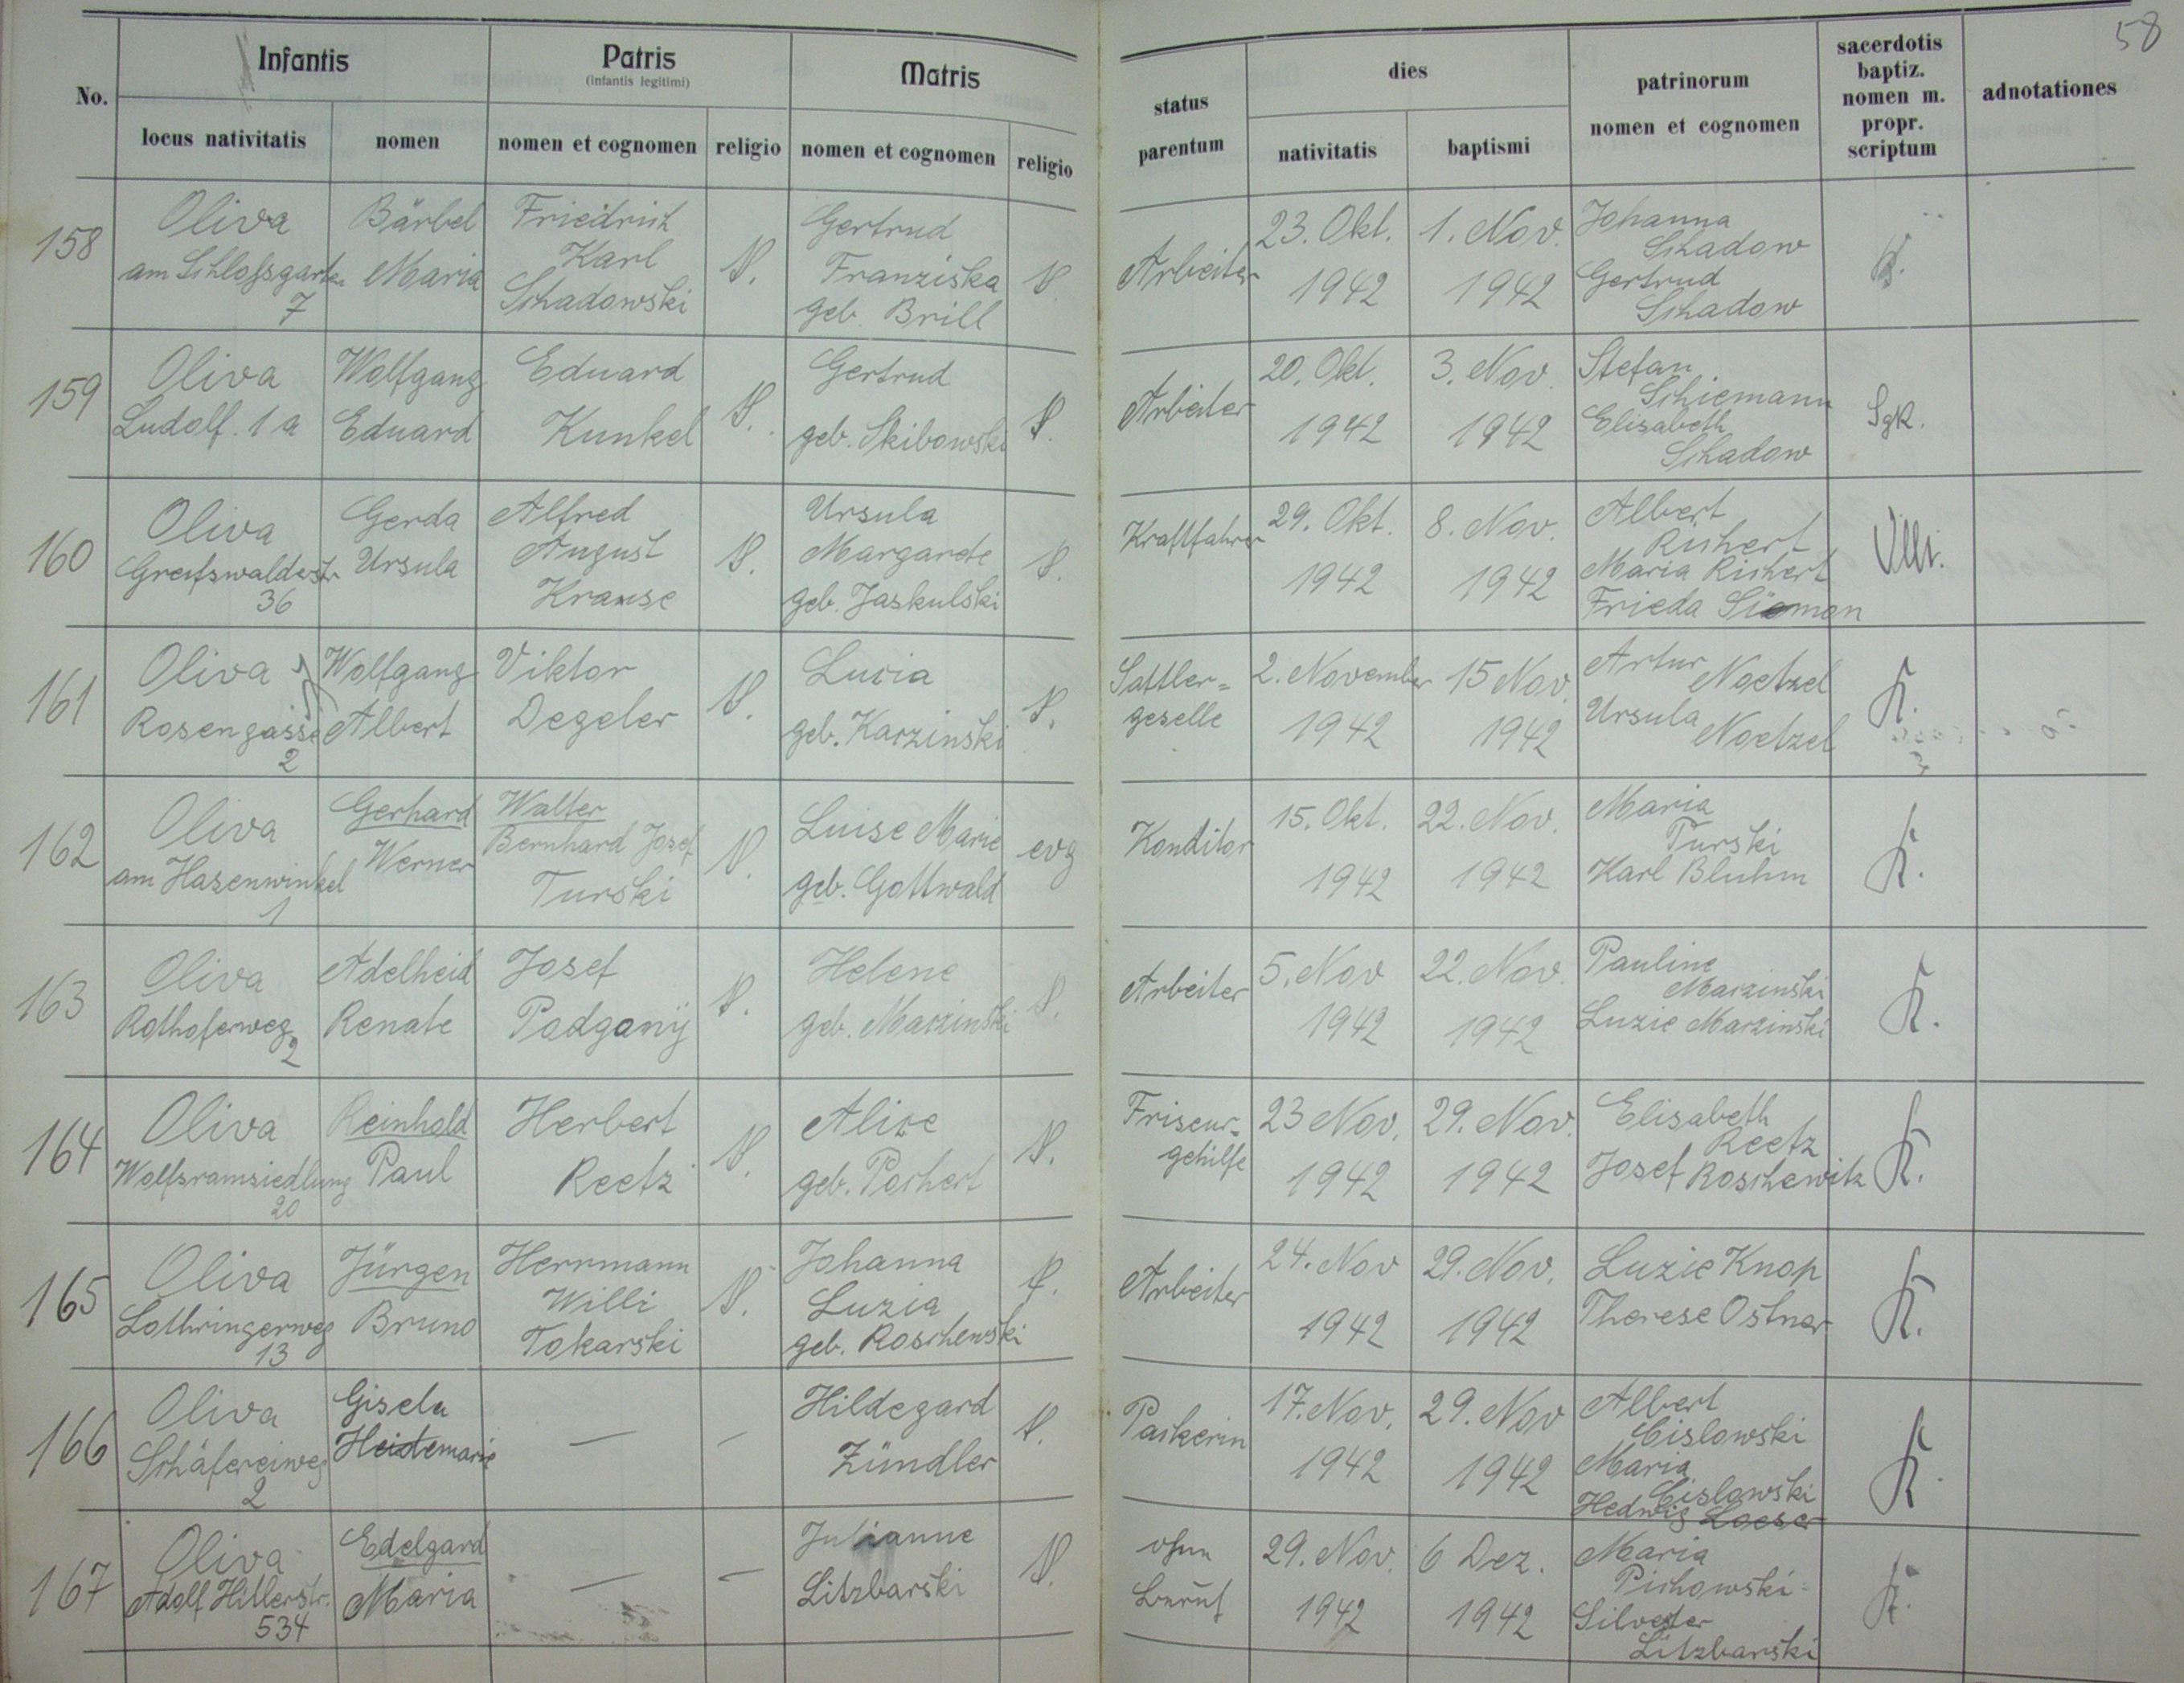 58
No.
Infantis
Patris
(infantis legitimi)
Matris
status
parentum
dies
patrinorum
nomen et cognomen
sacerdotis
baptiz.
nomen m.
propr.
scriptum
adnotationes
locus nativitatis
nomen
nomen et cognomen
religio
nomen et cognomen
religio
nativitatis
baptismi
158
Oliva
am Schloßgarten
7
Bärbel
Maria
Friedrich
Karl
Schadowski
Gertrud
Franziska
geb. Brill
Arbeiter
23. Okt.
1942
1. Nov.
1942
Johanna
Schadow
Gertrud
Schadow
159
Oliva
Ludolf. 1 a
Wolfgang
Eduard
Eduard
Kunkel
Gertrud
geb. Skibowski
Arbeiter
20. Okt.
1942
3. Nov.
1942
Stefan
Schiemann
Elisabeth
Schadow
Sgk.
160
Oliva
Greifswalderstr
36
Gerda
Ursula
Alfred
August
Krause
Ursula
Margarete
geb. Jaskulski
Kraftfahrer
29. Okt.
1942
8. Nov.
1942
Albert
Richert
Maria Richert
Frieda
161
Oliva
Rosengasse
2
Wolfgang
Albert
Viktor
Degeler
Lucia
geb. Karzinski
Sattler=
geselle
2. November
1942
15 Nov.
1942
Artur
Noetzel
Ursula
Noetzel
K.
162
Oliva
am Hasenwinkel
1
Gerhard
Werner
Walter
Bernhard Josef
Turski
Luise Marie
geb. Gottwald
evg
Konditor
15. Okt.
1942
22. Nov.
1942
Maria
Turski
Karl Bluhm
K.
163
Oliva
Rothoferweg
2
Adelheid
Renate
Josef
Podgany
Helene
geb. Marzinski
Arbeiter
5. Nov
1942
22. Nov.
1942
Pauline
Marzinski
Luzie Marzinski
K.
164
Oliva
Wolfsramsiedlung
20
Reinhold
Paul
Herbert
Reetz
Alice
geb. Pochert
Friseur-
gehilfe
23 Nov.
1942
29. Nov.
1942
Elisabeth
Reetz
Josef Roschewitz
K.
165
Oliva
Lothringerweg
13
Jürgen
Bruno
Herrmann
Willi
Tokarski
Johanna
Luzia
geb. Roschewski
Arbeiter
24. Nov
1942
29. Nov.
1942
Luzie Knop
Therese Ostner
K.
166
Oliva
Schäfereiweg
2
Gisela
Heidemarie
—
—
Hildegard
Zündler
Packerin
17. Nov.
1942
29. Nov
1942
Albert
Cislowski
Maria
Cislowski
Hedwig Loeser
K
167
Oliva
Adolf Hitlerstr.
534
Edelgard
Maria
—
—
Julianne
Litzbarski
ohne
Beruf
29. Nov.
1942
6 Dez.
1942
Maria
Pichowski
Silvester
Litzbarski
K.